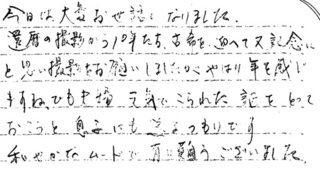 今日は大変お世話になりました。
還暦の撮影から10年たち、古希を迎へて又記念に
と思い撮影をお願いしましたが、やはり年を感じ
ますね、でも夫婦元気でこられた証をとって
おこうと息子にも送るつもりです
和やかなムードで有難うございました。